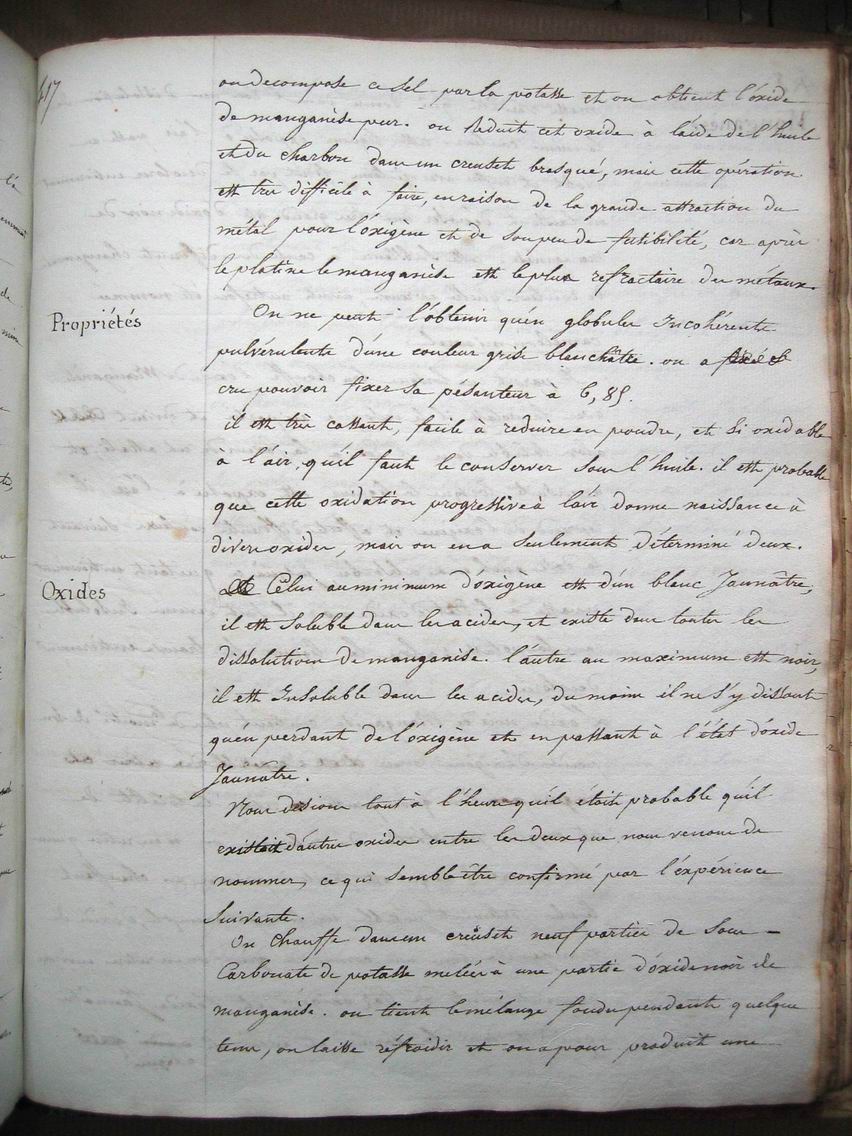 417
on decompose ce sel par la potasse et on obtient l'oxide
de manganèse pur. on Réduit cet oxide à l'aide de l'huile
et du charbon dans un creuset brasqué, mais cette opération
est très difficile à faire, en raison de la grande attraction du
métal pour l'oxigène et de son peu de fusibilité, car après
le platine le manganèse est le plus refractaire des métaux.
Propriétés
On ne peut l'obtenir qu'en globules Incohérents
pulvérulents d'une couleur grise blanchâtre. on a
cru pouvoir fixer sa pésanteur à 6,85.
il est très cassant, facile à réduire en poudre, et si oxidable
à l'air, qu'il faut le conserver sous l'huile. il est probable
que cette oxidation progressive à l'air donne naissance à
divers oxides, mais on en a seulement déterminé deux.
Oxides
Celui au minimum d'oxigène est d'un blanc Jaunâtre,
il est soluble dans les acides, et existe dans toutes les
dissolutions de manganèse. l'autre au maximum est noir,
il est Insoluble dans les acides, du moins il ne s'y dissout
qu'en perdant de l'oxigène et en passant à l'état d'oxide
Jaunâtre.
Nous disions tout à l'heure qu'il étoit probable qu'il
existoit d'autres oxides entre les deux que nous venons de
nommer, ce qui semble être confirmé par l'expérience
suivante.
On chauffe dans un creuset neuf parties de sous-
Carbonate de potasse melées à une partie d'oxide noir de
manganèse. on tient le mélange fondu pendant quelque
tems, on laisse réfroidir et on a pour produit une